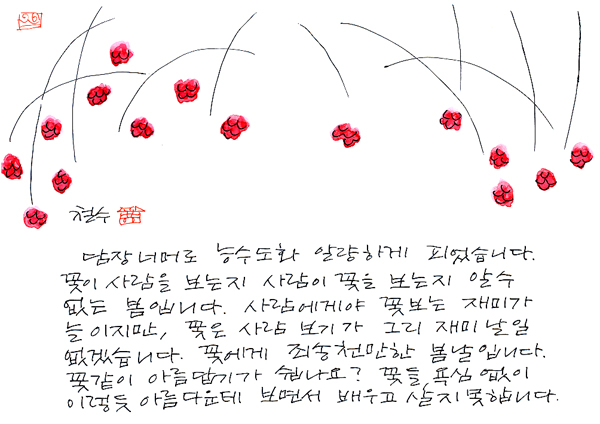 철수
담장너머로 능수도화 알량하게 피었습니다.
꽃이 사람을 보는지 사람이 꽃을 보는지 알수
없는 봄입니다. 사람에게야 꽃보는 재미가
늘이지만, 꽃은 사람 보기가 그리 재미날일
없겠습니다. 꽃에게 죄송천만한 봄날입니다.
꽃같이 아름답기가 쉽나요? 꽃들, 욕심 없이
이렇듯 아름다운데 보면서 배우고 살지 못합니다.